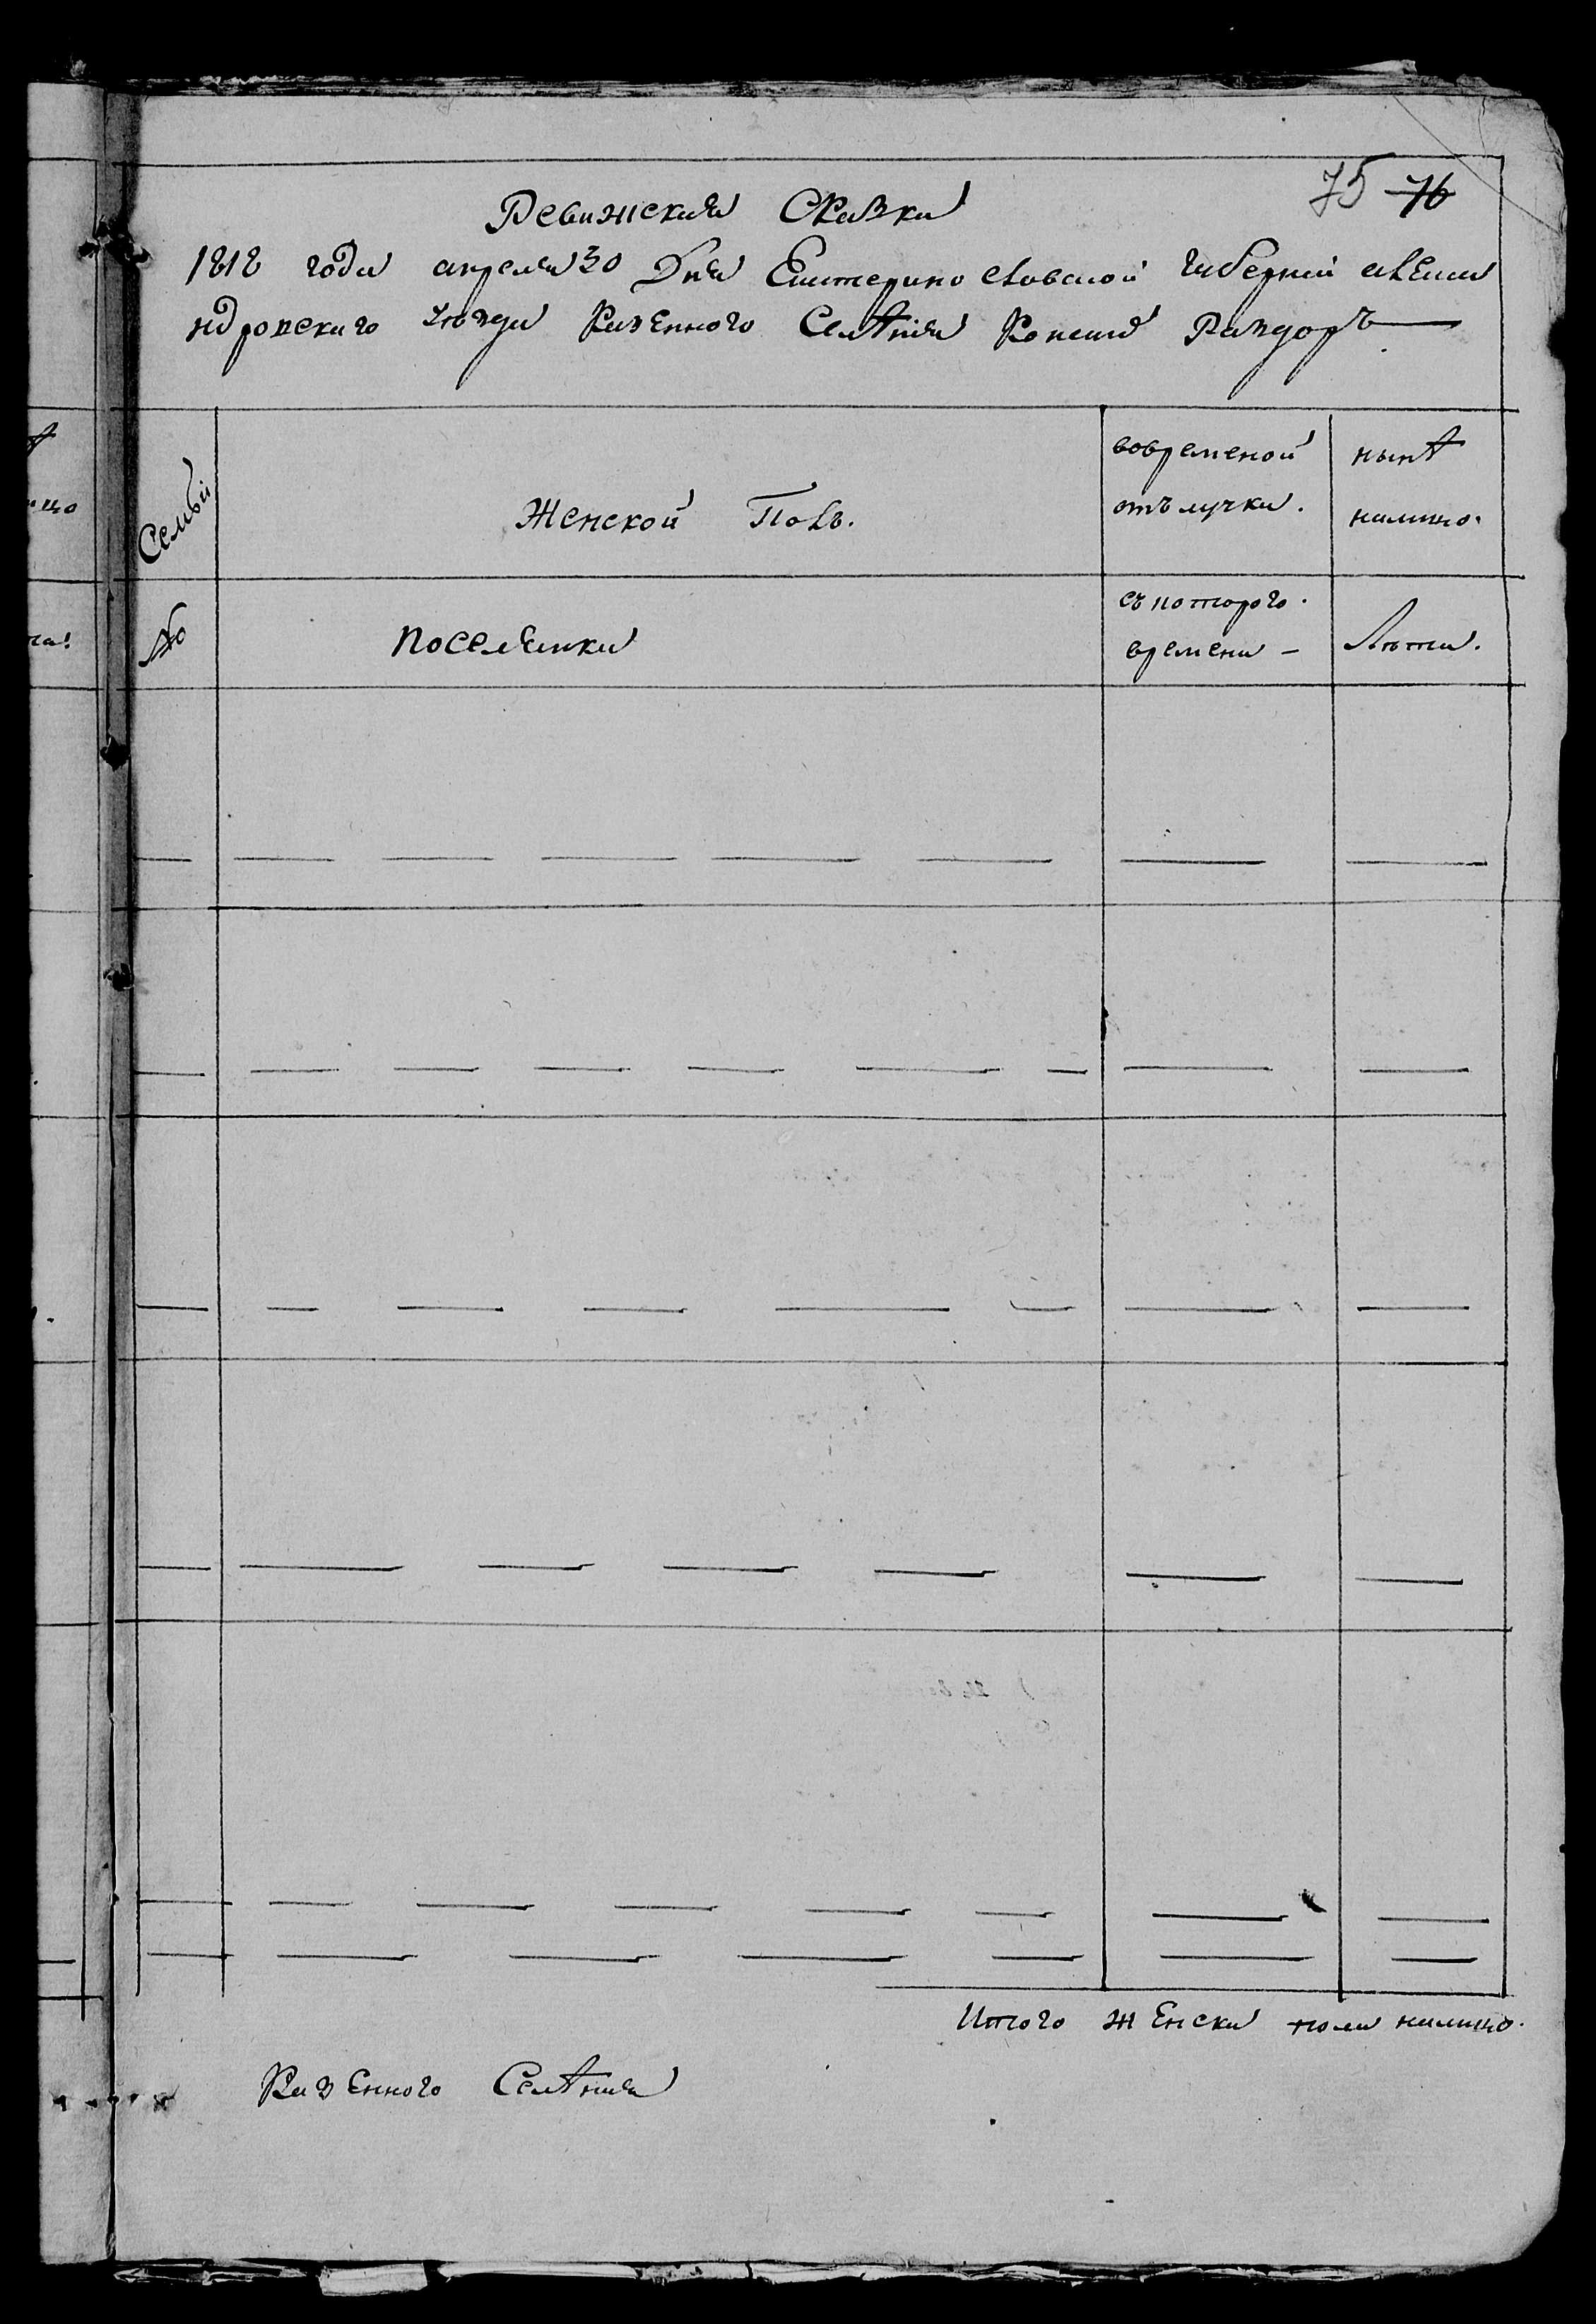 75 76
Ревижская Сказка
1818 года апреля 30 Дня Екатерино славской губернии алекса
ндровского уѣзда Казенного Селѣния Конских Раздоръ
Семьи
Женской Полъ.
вовременой
отълучки.
нынѣ
налицо.
№
поселянки
съ которого
времени —
Лѣта.
Итого женска пола налицо.
Казенного Селѣния